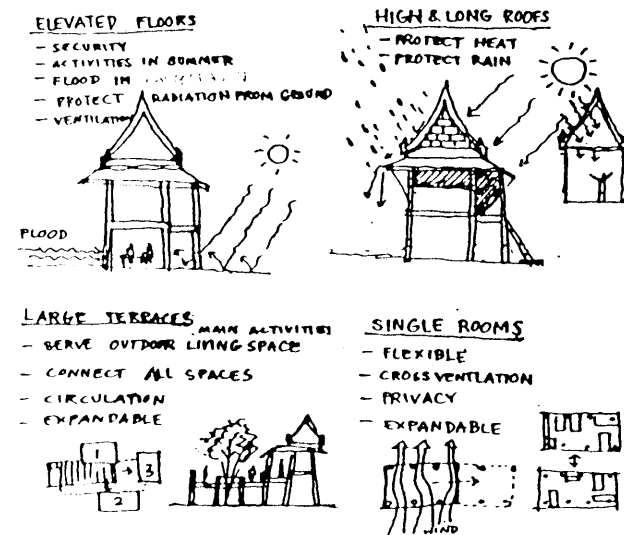 ELEVATED FLOORS
- SECURITY
- ACTIVITIES IN SUMMER
- FLOOD IN
- PROTECT RADIATION FROM GROUND
- VENTILATION
FLOOD
HIGH & LONG ROOFS
- PROTECT HEAT
- PROTECT RAIN
LARGE TERRACES
MAIN ACTIVITIES
- SERVE OUTDOOR LIVING SPACE
- CONNECT ALL SPACES
- CIRCULATION
- EXPANDABLE
1
3
2
SINGLE ROOMS
- FLEXIBLE
- CROSS VENTLATION
- PRIVACY
- EXPANDABLE
WIND